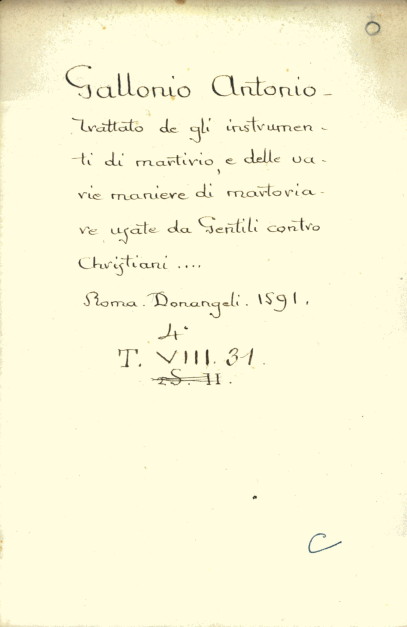 Gallonio Antonio -
Trattato de gli instrumen -
ti di martirio, e delle va -
rie maniere di martoria -
re usate da Gentili contro
Christiani ....
Roma. Donangeli. 1591.
4°
T. VIII. 31.
C